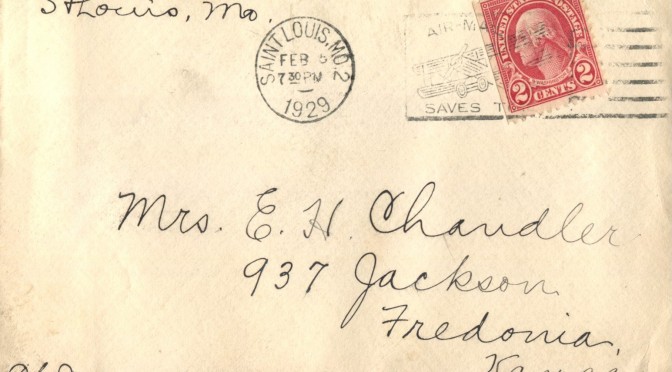 St Louis, Mo.
SAINT LOUIS, MO. 2
FEB 5
7 30 PM
1929
AIR-MA
SAVES T
UNITED STATES POSTAGE
2 CENTS 2
Mrs. E. H. Chandler
937 Jackson
Fredonia,